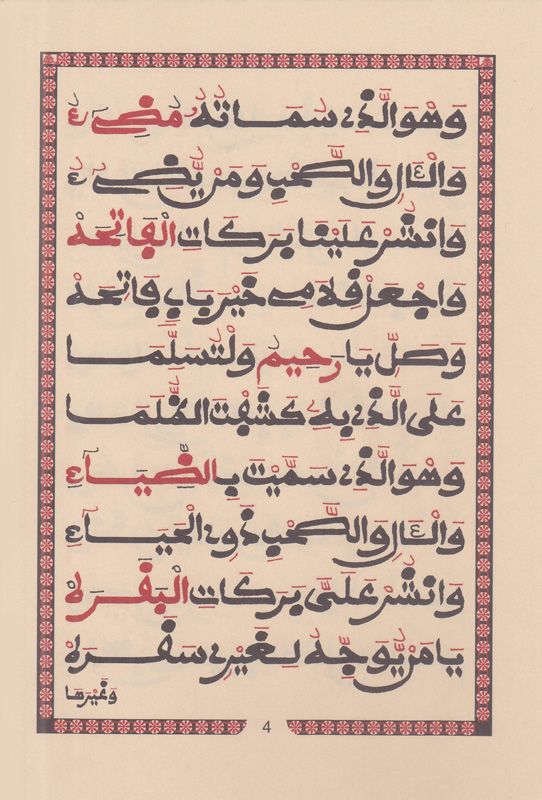 وَهْوَ الَّذِي سَمَاتُهُ مُضِيءُ
وَالْآلِ وَالصَّحْبِ وَمَنْ يُضِيءُ
وَانْشُرْ عَلَيْنَا بَرَكَاتِ الْفَاتِحَهْ
وَاجْعَلْ خَيْرَ بَابٍ فَاتِحَهْ
وَصَلِّ يَا رَحِيمُ وَلْتُسَلِّمَا
عَلَى الَّذِي بِهِ كَشَفْتَ الظُّلَمَا
وَهْوَ الَّذِي سَمَّيْتَ بِالضِّيَاءِ
وَالْآلِ وَالصَّحْبِ ذَوِي الْحَيَاءِ
وَانْشُرْ عَلَيَّ بَرَكَاتِ الْبَقَرَهْ
يَا مَنْ يُوَجِّهُ لِغَيْرِي سَقَرَهْ
وَغَيْرَهَا
4